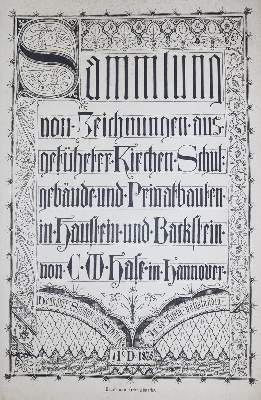 Sammlung
von Zeichnungen aus-
geführter Kirchen Schul-
gebäude und Privatbauten
in Haustein und Backstein
von C. W. Hase in Hannover